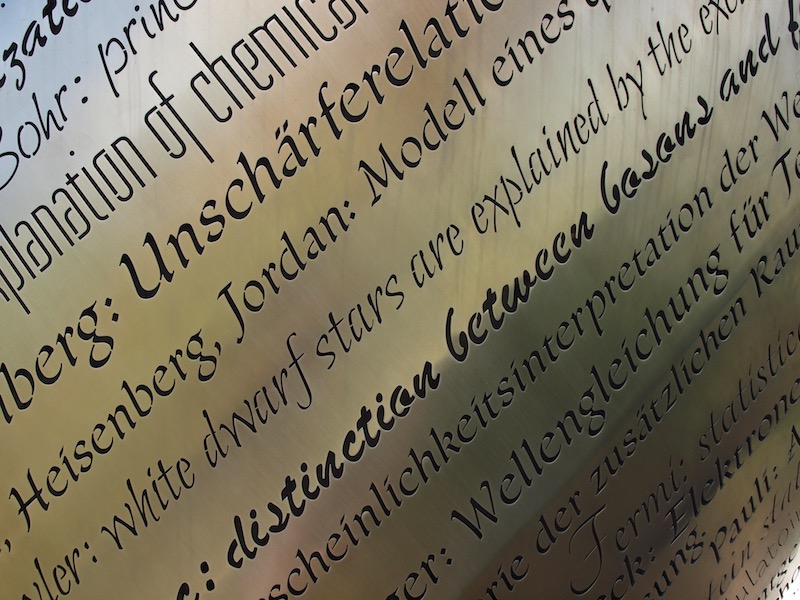 Bohr: prin
planation of chemical
nberg: Unschärferelatio
, Heisenberg, Jordan: Modell eines
wler: white dwarf stars are explained by the exc
c: distinction between bosons and f
scheinlichkeitsinterpretation der We
ger: Wellengleichung für Te
rie der zusätzlichen Rau
Fermi: statistic
eck: Elektronen
sung pauli: A